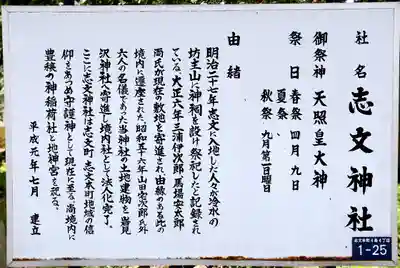 社名 志文神社
御祭神 天照皇大神
祭日 春祭 四月九日
夏祭
秋祭 九月第一日曜日
由緒
明治二十七年志文に入地した人々が冷水の
坊主山に神祠を設け祭祀したと記録され
ている。大正六年三浦伊次郎、馬場安太郎
両氏が現在の敷地を寄進され、由緒のある此の
境内に遷座された。昭和五十六年山田定次郎氏外
六人の名儀であった当神社の土地建物を岩見
沢神社へ寄進し境内社として法人化完了。
ここに志文神社は志文町、志文本町地域の信
仰をあつめ守護神として現在に至る。尚境内に
豊穣の神稲荷社と地神宮を祀る。
平成元年七月 建立
志文本町4条4丁目
1-25